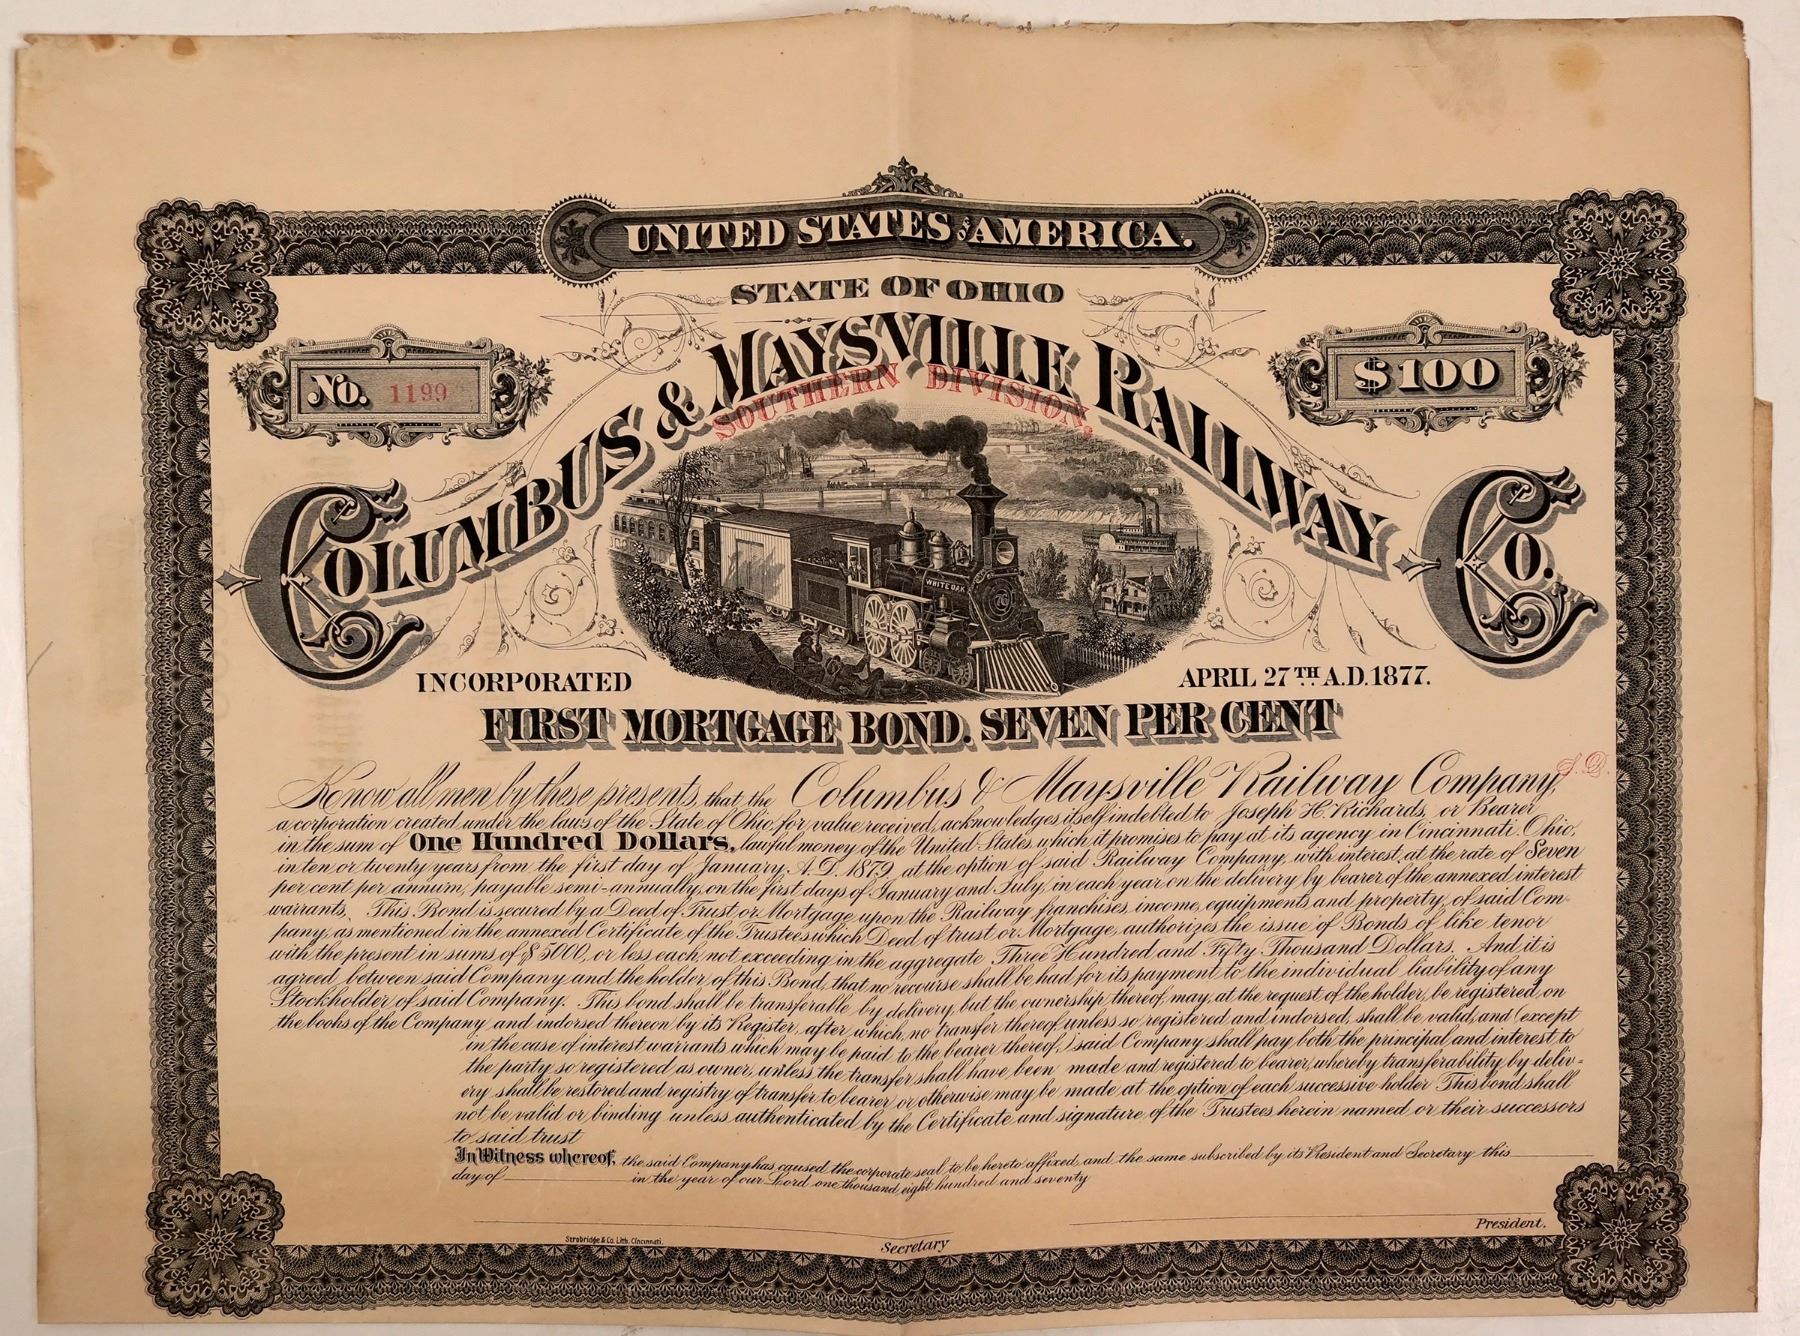 UNITED STATES OF AMERICA.
STATE OF OHIO
No. 1199
$100
COLUMBUS & MAYSVILLE RAILWAY CO.
SOUTHERN DIVISION,
WHITE OAK
INCORPORATED APRIL 27TH A.D. 1877.
FIRST MORTGAGE BOND. SEVEN PER CENT
Know all men by these presents, that the Columbus & Maysville Railway Company, S. D.
a corporation created under the laws of the State of Ohio, for value received, acknowledges itself indebted to Joseph H. Richards, or Bearer
in the sum of One Hundred Dollars, lawful money of the United States, which it promises to pay at its agency in Cincinnati, Ohio,
in ten or twenty years from the first day of January, A.D. 1879, at the option of said Railway Company, with interest, at the rate of Seven
per cent per annum, payable semi-annually, on the first days of January and July, in each year on the delivery by bearer of the annexed interest
warrants. This Bond is secured by a Deed of Trust or Mortgage upon the Railway, franchises, income, equipments and property, of said Com-
pany, as mentioned in the annexed Certificate of the Trustees which Deed of trust or Mortgage, authorizes the issue of Bonds of like tenor
with the present in sums of $5000, or less each, not exceeding in the aggregate Three Hundred and Fifty Thousand Dollars. And it is
agreed between said Company and the holder of this Bond, that no recourse shall be had for its payment to the individual liability of any
Stockholder of said Company. This bond shall be transferable by delivery, but the ownership thereof, may, at the request of the holder, be registered, on
the books of the Company and indorsed thereon by its Register, after which, no transfer thereof, unless so registered and indorsed, shall be valid, and (except
in the case of interest warrants which may be paid to the bearer thereof,) said Company shall pay both the principal and interest to
the party so registered as owner, unless the transfer shall have been made and registered to bearer, whereby transferability by deliv=
ery shall be restored and registry of transfer to bearer or otherwise may be made at the option of each successive holder This bond shall
not be valid or binding unless authenticated by the Certificate and signature of the Trustees herein named or their successors
to said trust
In Witness whereof, the said Company has caused the corporate seal to be hereto affixed, and the same subscribed by its President and Secretary this
day of in the year of our Lord one thousand eight hundred and seventy
President.
Strobridge & Co. Lith. Cincinnati.
Secretary